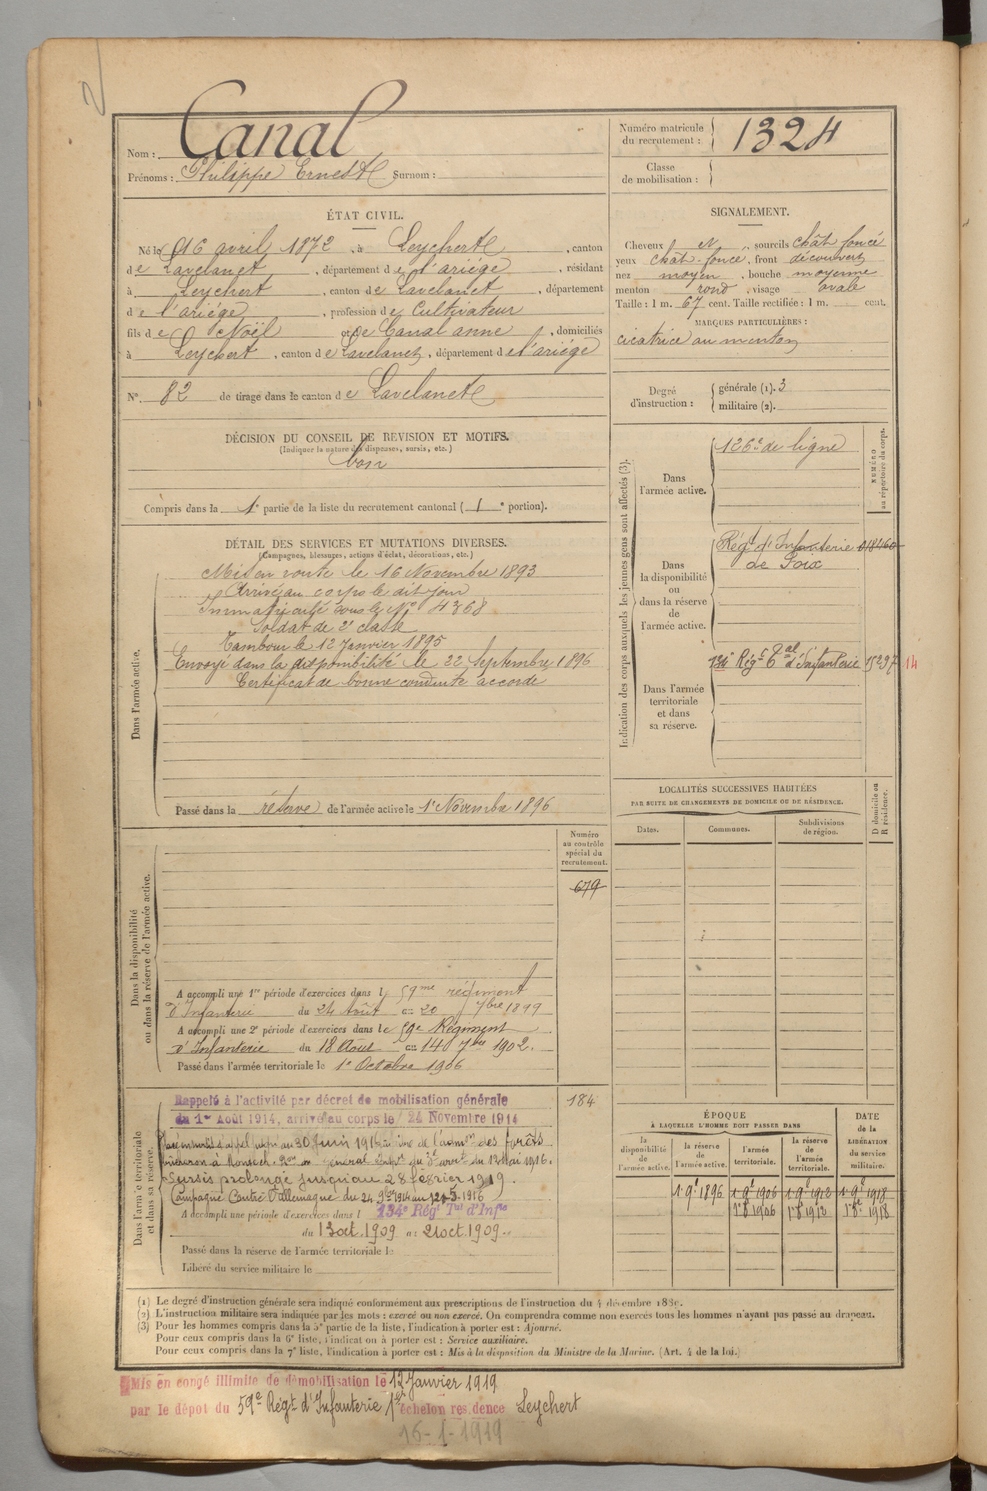 Nom : Canal
Prénoms : Philippe Ernest Surnom :
Numéro matricule du recrutement : 1324
Classe de mobilisation :
ÉTAT CIVIL.
Né le 16 avril 1872, à Leychert, canton
de Lavelanet, département de l'ariége, résidant
à Leychert, canton de Lavelanet, département
de l'ariége, profession de Cultivateur
fils de Noël et de Canal anne, domiciliés
à Leychert, canton de Lavelanet, département de l'ariége
N° 82 de tirage dans le canton de Lavelanet
SIGNALEMENT.
Cheveux N, sourcils chât foncé
yeux chât-foncé, front découvert
nez moyen, bouche moyenne
menton rond, visage ovale
Taille : 1 m. 67 cent. Taille rectifiée : 1 m. cent.
MARQUES PARTICULIÈRES :
cicatrice au menton
Degré d'instruction :
générale (1). 3
militaire (2).
DÉCISION DU CONSEIL DE REVISION ET MOTIFS.
(Indiquer la nature des dispenses, sursis, etc.)
bon
Compris dans la 1e partie de la liste du recrutement cantonal (1e portion).
Indication des corps auxquels les jeunes gens sont affectés (3).
NUMÉRO au répertoire du corps.
Dans l'armée active.
126e de ligne
Dans la disponibilité ou dans la réserve de l'armée active.
Régt d'Infanterie 018460
de Foix
Dans l'armée territoriale et dans sa réserve.
134e Régt Tal d'Infanterie 15297 14
DÉTAIL DES SERVICES ET MUTATIONS DIVERSES.
(Campagnes, blessures, actions d'éclat, décorations, etc.)
Dans l'armée active.
Mis en route le 16 Novembre 1893
Arrivé au corps le dit jour
Immatriculé sous le N° 4368
Soldat de 2e classe
Tambour le 12 Janvier 1895
Envoyé dans la disponibilité le 22 Septembre 1896
Certificat de bonne conduite accordé
Passé dans la réserve de l'armée active le 1er Novembre 1896
LOCALITÉS SUCCESSIVES HABITÉES
PAR SUITE DE CHANGEMENTS DE DOMICILE OU DE RÉSIDENCE.
Dates. Communes. Subdivisions de région. D domicile ou R résidence.
Dans la disponibilité ou dans la réserve de l'armée active.
Numéro au contrôle spécial du recrutement.
679
A accompli une 1re période d'exercices dans le 59me régiment
d'Infanterie du 24 Août au 20 7bre 1899
A accompli une 2e période d'exercices dans le 59e Régiment
d'Infanterie du 18 Août au 14 7bre 1902.
Passé dans l'armée territoriale le 1er Octobre 1906
Dans l'armée territoriale et dans sa réserve.
184
Rappelé à l'activité par décret de mobilisation générale
du 1er Août 1914, arrivé au corps le 24 Novembre 1914
d'appel jusqu'au 30 Juin 1916 des forêts
du 13 Mai 1916.
Sursis prolongé jusqu'au 28 février 1919.
Campagne Contre l'Allemagne du 24 9bre 1914 au 12-5-1916
A accompli une période d'exercices dans l 134e Régt Tal d'Infrie
du 13 oct. 1909 au 21 oct. 1909.
Passé dans la réserve de l'armée territoriale le
Libéré du service militaire le
ÉPOQUE
À LAQUELLE L'HOMME DOIT PASSER DANS
la disponibilité de l'armée active.
la réserve de l'armée active.
l'armée territoriale.
la réserve de l'armée territoriale.
DATE de la LIBÉRATION du service militaire.
1 9e 1896 1 9e 1906 1 9e 1912 1 9e 1918
1r 8e 1906 1r 8e 1912 1r 8e 1918
(1) Le degré d'instruction générale sera indiqué conformément aux prescriptions de l'instruction du 4 décembre 1889.
(2) L'instruction militaire sera indiquée par les mots : exercé ou non exercé. On comprendra comme non exercés tous les hommes n'ayant pas passé au drapeau.
(3) Pour les hommes compris dans la 5e partie de la liste, l'indication à porter est : Ajourné.
Pour ceux compris dans la 6e liste, l'indication à porter est : Service auxiliaire.
Pour ceux compris dans la 7e liste, l'indication à porter est : Mis à la disposition du Ministre de la Marine. (Art. 4 de la loi.)
Mis en congé illimité de démobilisation le 12 Janvier 1919
par le dépôt du 59e Régt d'Infanterie 1er échelon résidence Leychert
16-1-1919